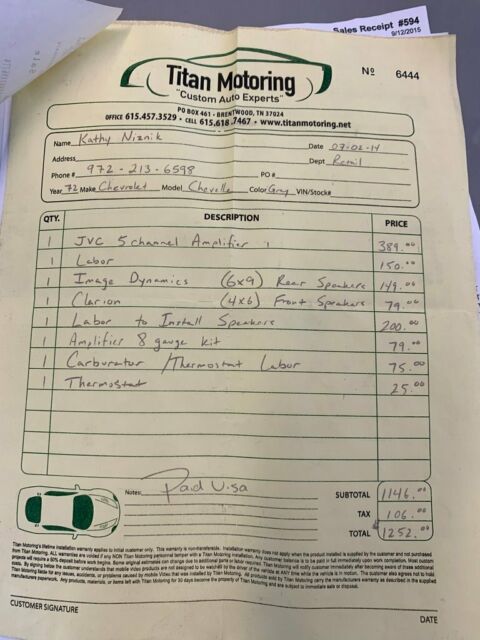 Sales Receipt #594
9/12/2015
Titan Motoring
"Custom Auto Experts"
Nº 6444
PO BOX 461 • BRENTWOOD, TN 37024
OFFICE 615.457.3529 • CELL 615.618.7467 • www.titanmotoring.net
Name Kathy Niznik Date 07-02-14
Address Dept Retail
Phone # 972-213-6598 PO #
Year 72 Make Chevrolet Model Chevelle Color Gray VIN/Stock#
QTY. DESCRIPTION PRICE
1 JVC 5 channel Amplifier 389.00
1 Labor 150.00
1 Image Dynamics (6x9) Rear Speakers 149.00
1 Clarion (4x6) Front Speakers 79.00
1 Labor to Install Speakers 200.00
1 Amplifier 8 gauge kit 79.00
1 Carburator / Thermostat Labor 75.00
1 Thermostat 25.00
Notes: Paid Visa
SUBTOTAL 1146.00
TAX 106.00
TOTAL 1252.00
Titan Motoring's lifetime installation warranty applies to initial customer only. This warranty is non-transferable. Installation warranty does not apply when the product installed is supplied by the customer and not purchased
from Titan Motoring. ALL warranties are voided if any NON Titan Motoring personnel tamper with a Titan Motoring installation. Any customer balance is to be paid in full immediately upon work completion. Most custom
projects will require a 60% deposit before work begins. Some original estimates can change due to additional parts or labor required. Titan Motoring will notify customer immediately after becoming aware of these additional
costs. By signing below the customer understands that mobile video products are not designed to be watched by the driver of the vehicle at ANY time while the vehicle is in motion. The customer also agrees not to hold
Titan Motoring liable for any issues, accidents, or problems caused by mobile Video that was installed by Titan Motoring. All products sold by Titan Motoring carry the manufacturers warranty as described in the supplied
manufacturers paperwork. Any products, materials, or items left with Titan Motoring for 30 days become the property of Titan Motoring and are subject to immediate sale or disposal.
CUSTOMER SIGNATURE DATE